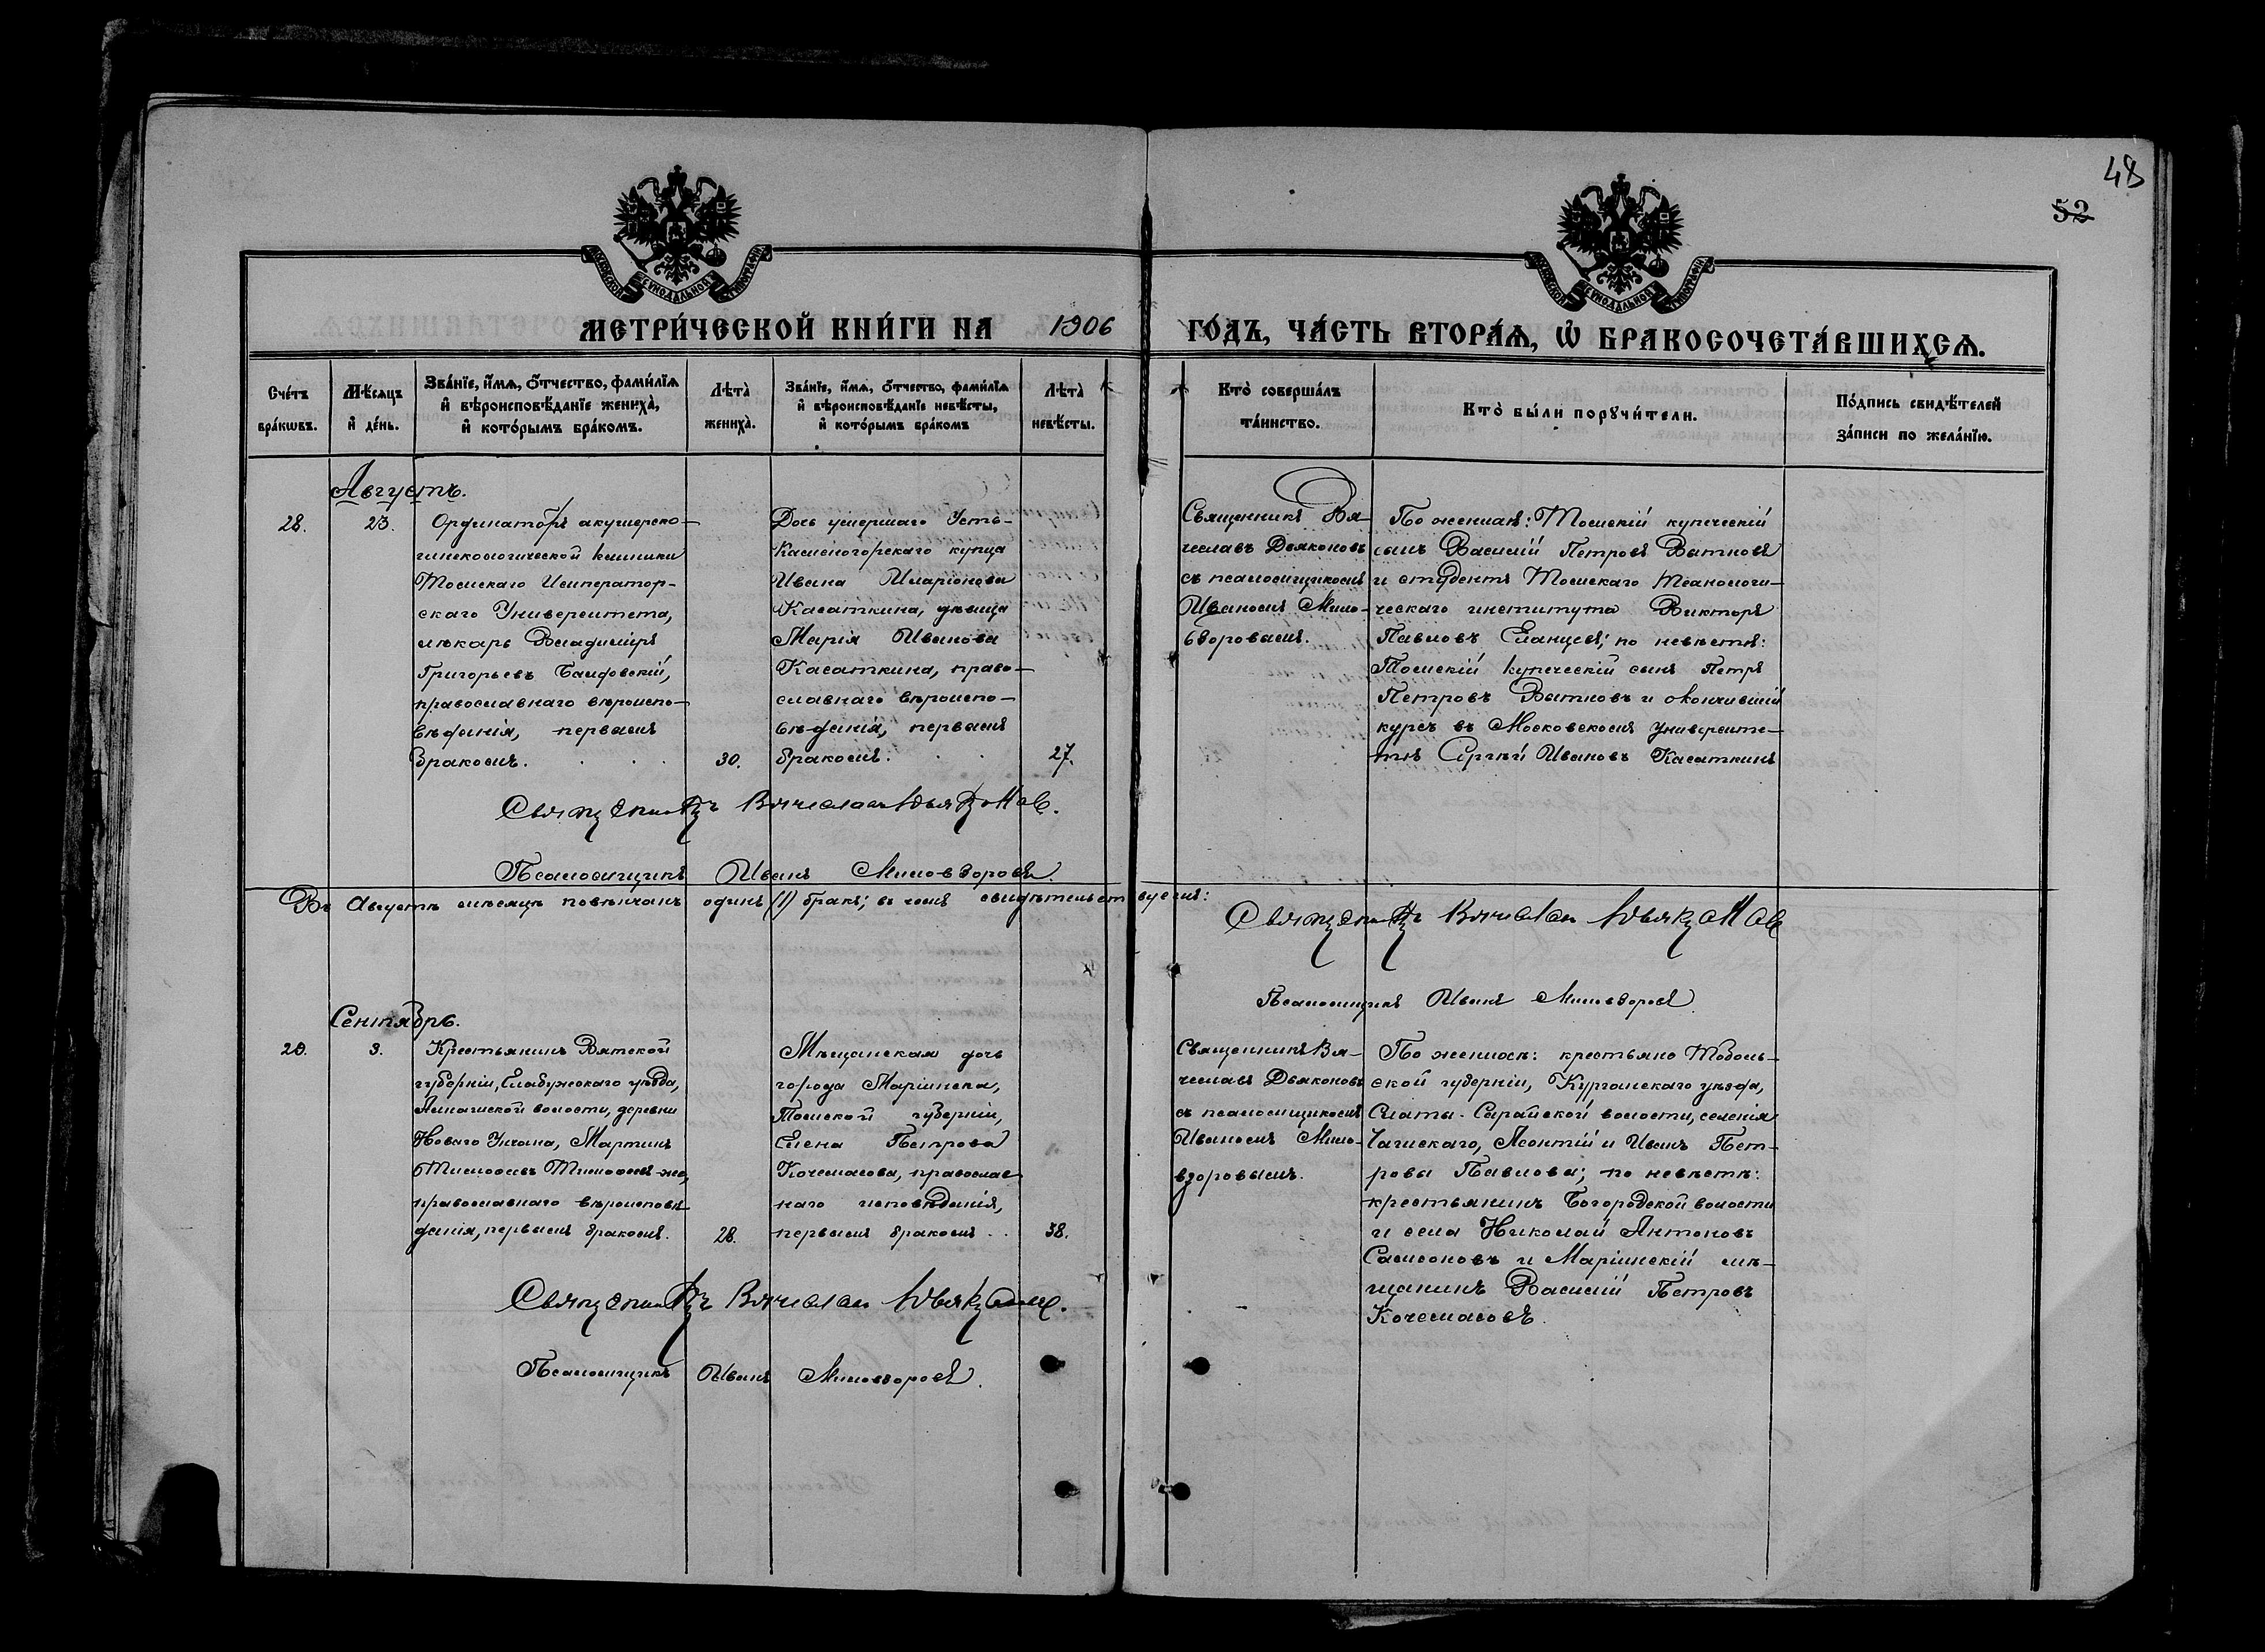 48
52
МОСКОВСКОЙ СѴНОДАЛЬНОЙ ТИПОГРАФІИ
МОСКОВСКОЙ СѴНОДАЛЬНОЙ ТИПОГРАФІИ
МЕТРИ́ЧЕСКОЙ КНИ́ГИ НА 1906 ГО́ДЪ, ЧА́СТЬ ВТОРА́Ѧ, Ѡ҆ БРАКОСОЧЕТА́ВШИХСѦ.
Сче́тъ
бра́кѡвъ.
Мѣ́сяцъ
и҆ де́нь.
Зва́нїе, и҆́мѧ, ѻ҆́тчество, фами́лїѧ
и҆ вѣроисповѣ́данїе жениха̀,
и҆ кото́рымъ бра́комъ.
Лѣта̀
жениха̀.
Зва́нїе, и҆́мѧ, ѻ҆́тчество, фами́лїѧ
и҆ вѣроисповѣ́данїе невѣ́сты,
и҆ кото́рымъ бра́комъ
Лѣта̀
невѣ́сты.
Кто̀ соверша́лъ
та́инство.
Кто̀ бы́ли порꙋчи́тели.
По́дпись свидѣ́телей
за́писи по жела́нїю.
Августъ.
28.
23.
Ординаторъ акушерско-
гинекологической клиники
Томскаго Император-
скаго Университета,
лѣкарь Владиміръ
Григорьевъ
православнаго вѣроиспо-
вѣданія, первымъ
бракомъ.
30.
Дочь умершаго Усть-
Каменогорскаго купца
Ивана Иларіонова
Касаткина, дѣвица
Марія Иванова
Касаткина, право-
славнаго вѣроиспо-
вѣданія, первымъ
бракомъ.
27.
Священникъ Вя-
чеславъ Дьяконовъ
съ псаломщикомъ
Иваномъ Мило-
взоровымъ.
По женихѣ: Томскій купеческій
сынъ Василій Петровъ Вытновъ
и студентъ Томскаго Технологи-
ческаго института Викторъ
Павловъ Еланцевъ; по невѣстѣ:
Томскій купеческій сынъ Петръ
Петровъ Вытновъ и окончившій
курсъ въ Московскомъ университе-
тѣ Сергѣй Ивановъ Касаткинъ
Священникъ Вячеславъ Дьяконовъ.
Псаломщикъ Иванъ Миловзоровъ.
Въ Августѣ мѣсяцѣ повѣнчанъ одинъ (1) бракъ; въ чемъ свидѣтельствуемъ:
Священникъ Вячеславъ Дьяконовъ
Псаломщикъ Иванъ Миловзоровъ.
Сентябрь.
29.
3.
Крестьянинъ Вятской
губерніи, Елабужскаго уѣзда,
волости, деревни
Новаго Мартинъ
Тимофеевъ
православнаго вѣроисповѣ-
данія, первымъ бракомъ.
28.
Мѣщанская дочь
города Маріинска,
Томской губерніи,
Елена Петрова
Кочемасова, православ-
наго исповѣданія,
первымъ бракомъ
38.
Священникъ Вя-
чеславъ Дьяконовъ
съ псаломщикомъ
Иваномъ Мило-
взоровымъ.
По женихѣ: крестьяне Тоболь-
ской губерніи, Курганскаго уѣзда,
волости, селенія
Леонтій и Иванъ Пет-
ровы Павловы; по невѣстѣ:
крестьянинъ Богородской волости
и села Николай Антоновъ
Самсоновъ и Маріинскій мѣ-
щанинъ Василій Петровъ
Кочемасовъ.
Священникъ Вячеславъ Дьяконовъ.
Псаломщикъ Иванъ Миловзоровъ.